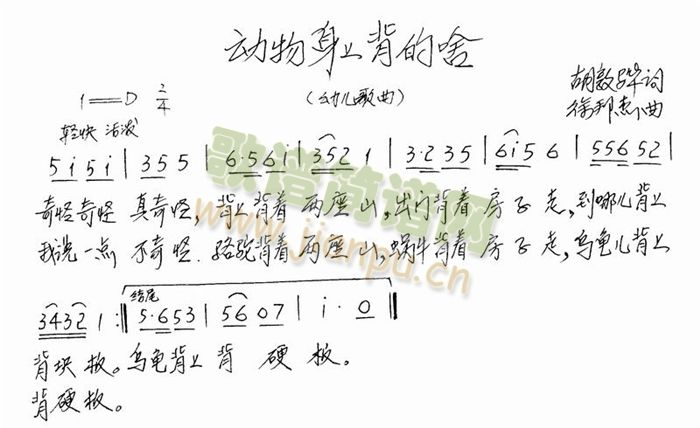 动物身上背的啥
（幼儿歌曲）
1=D 2/4
胡敦骅词
徐邦杰曲
轻快 活泼
5 i 5 i | 3 5 5 | 6·5 6 i | 3 5 2 1 | 3·2 3 5 | 6 i 5 6 | 5 5 6 5 2 |
奇怪奇怪 真奇怪，背上背着 两座山，出门背着 房子 走，到哪儿背上
我说一点 不奇怪．骆驼背着 两座山，蜗牛背着 房子 走，乌龟儿背上
结尾
3 4 3 2 1 :‖ 5·6 5 3 | 5 6 0 7 | i · 0 ‖
背块 板。乌龟背上 背 硬 板。
背硬板。
歌谱简谱网
www.jianpu.cn